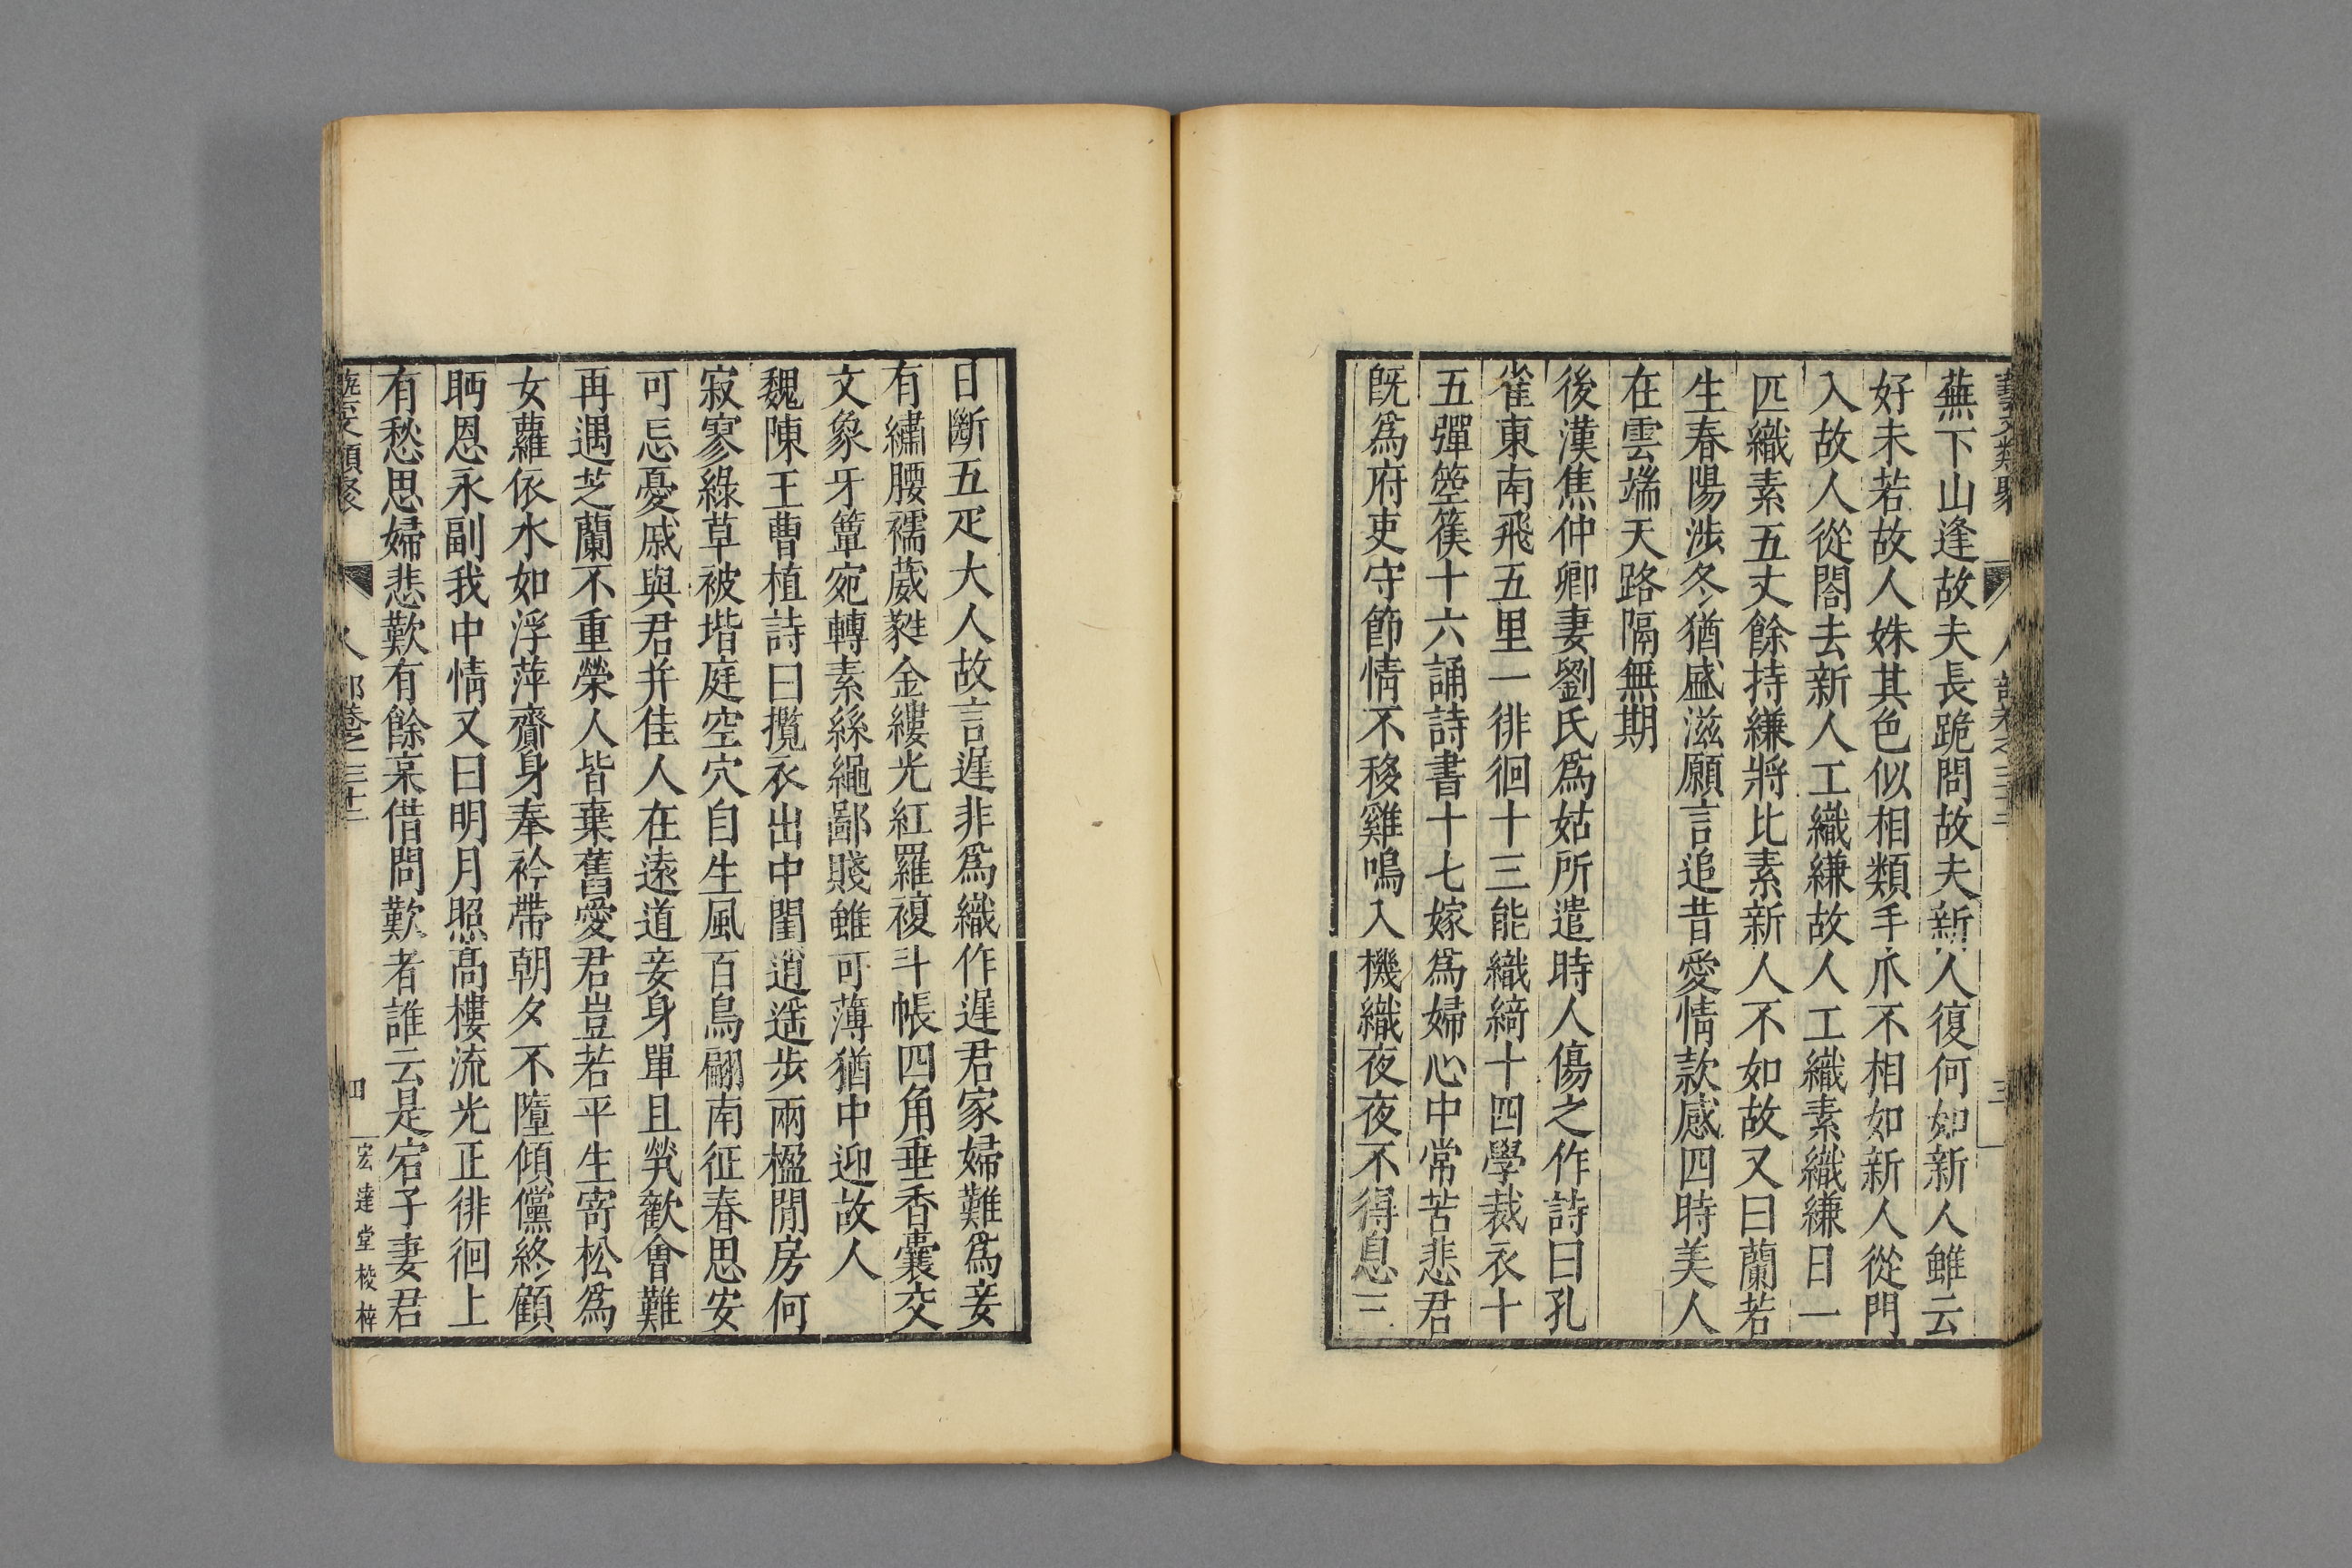 藝文類聚 人部卷之三十二 三
蕪下山逢故夫長跪問故夫新人復何如新人雖云
好未若故人姝其色似相類手爪不相如新人從門
入故人從閤去新人工織縑故人工織素織縑日一
匹織素五丈餘持縑將比素新人不如故又曰蘭若
生春陽涉冬猶盛滋願言追昔愛情款感四時美人
在雲端天路隔無期
後漢焦仲卿妻劉氏爲姑所遣時人傷之作詩曰孔
雀東南飛五里一徘徊十三能織綺十四學裁衣十
五彈箜篌十六誦詩書十七嫁爲婦心中常苦悲君
旣爲府吏守節情不移雞鳴入機織夜夜不得息三
日斷五疋大人故言遲非爲織作遲君家婦難爲妾
有繡腰襦葳蕤金縷光紅羅複斗帳四角垂香囊交
文象牙簟宛轉素絲繩鄙賤雖可薄猶中迎故人
魏陳王曹植詩曰攬衣出中閨逍遥步兩楹閒房何
寂寥綠草被堦庭空穴自生風百鳥翩南征春思安
可忘憂戚與君并佳人在遠道妾身單且煢歡會難
再遇芝蘭不重榮人皆棄舊愛君豈若平生寄松爲
女蘿依水如浮萍齎身奉衿帶朝夕不墮傾儻終顧
眄恩永副我中情又曰明月照高樓流光正徘徊上
有愁思婦悲歎有餘哀借問歎者誰云是宕子妻君
藝文類聚 人部卷之三十二 四 宏達堂校梓